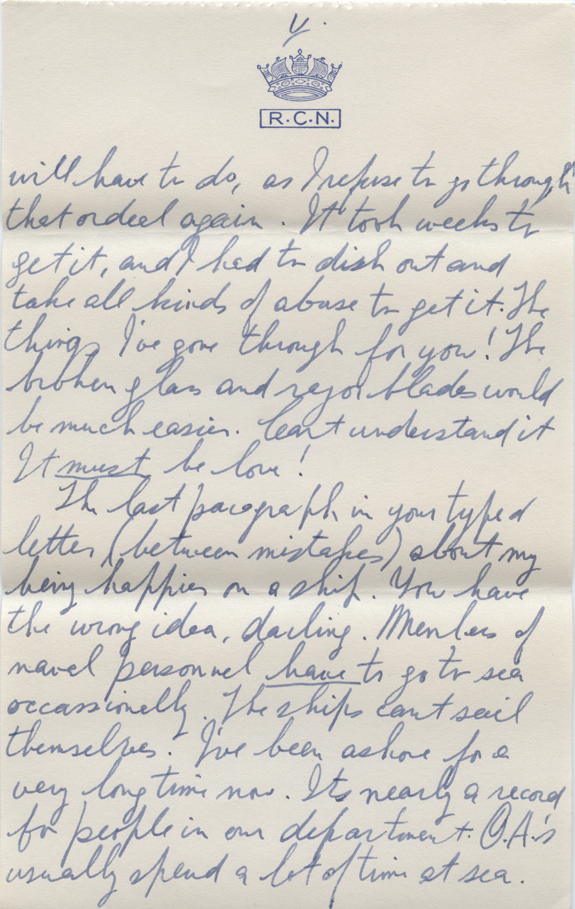 V.
R.C.N.
will have to do, as I refuse to go through
that ordeal again. It took weeks to
get it, and I had to dish out and
take all kinds of abuse to get it. The
things I've gone through for you! The
broken glass and razor blades would
be much easier. Can't understand it
It must be love!
The last paragraph in your typed
letter (between mistakes) about my
being happier on a ship. You have
the wrong idea, darling. Members of
naval personnel have to go to sea
occassionally. The ships can't sail
themselves. I've been ashore for a
very long time now. Its nearly a record
for people in our department. O.A.'s
usually spend a lot of time at sea.